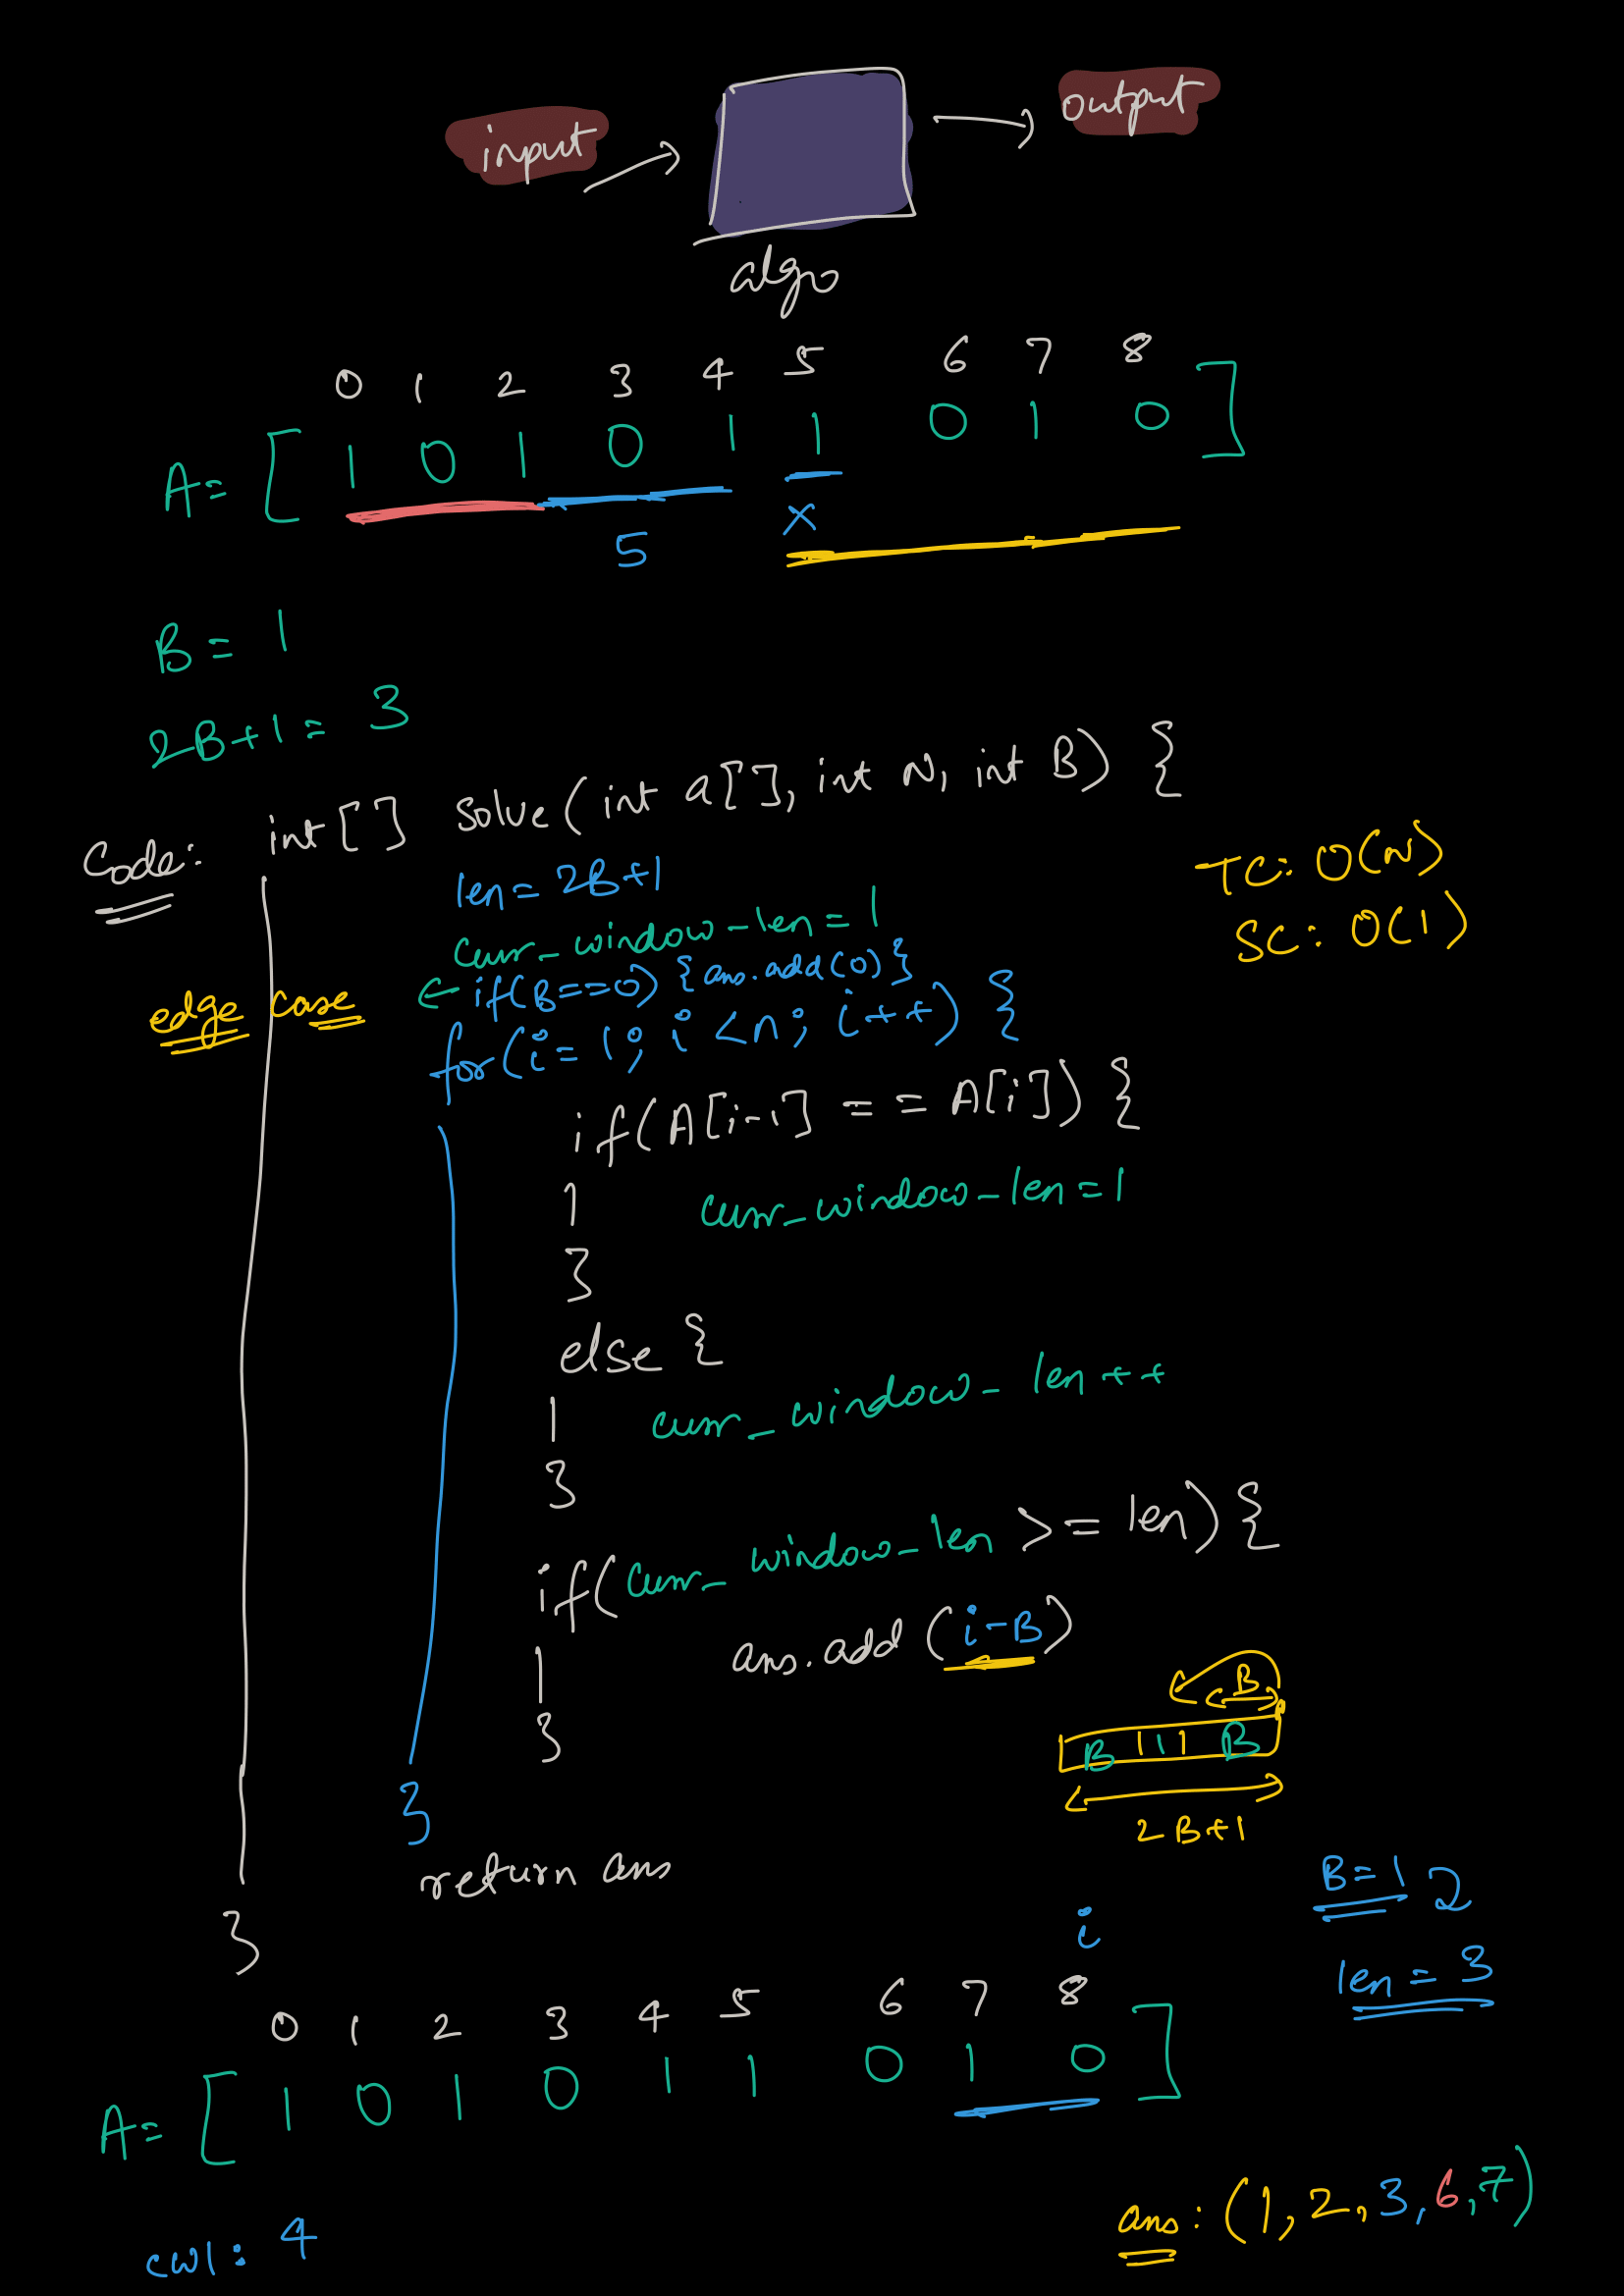 input
output
algo
0 1 2 3 4 5 6 7 8
A= [ 1 0 1 0 1 1 0 1 0 ]
5 x
B = 1
2B+1 = 3
Code: int[] solve(int a[], int N, int B) {
len = 2B+1
TC: O(N)
curr_window-len = 1
SC: O(1)
edge case ← if(B==0) {ans.add(0)}
for(i = 1; i < n; i++) {
if(A[i-1] == A[i]) {
curr_window-len = 1
}
else {
curr_window-len++
}
if(curr_window-len >= len) {
ans.add(i-B)
}
B
B 1 B
2B+1
}
return ans
}
B=1 2
len = 3
i
0 1 2 3 4 5 6 7 8
A= [ 1 0 1 0 1 1 0 1 0 ]
ans: (1, 2, 3, 6, 7)
cwl: 4